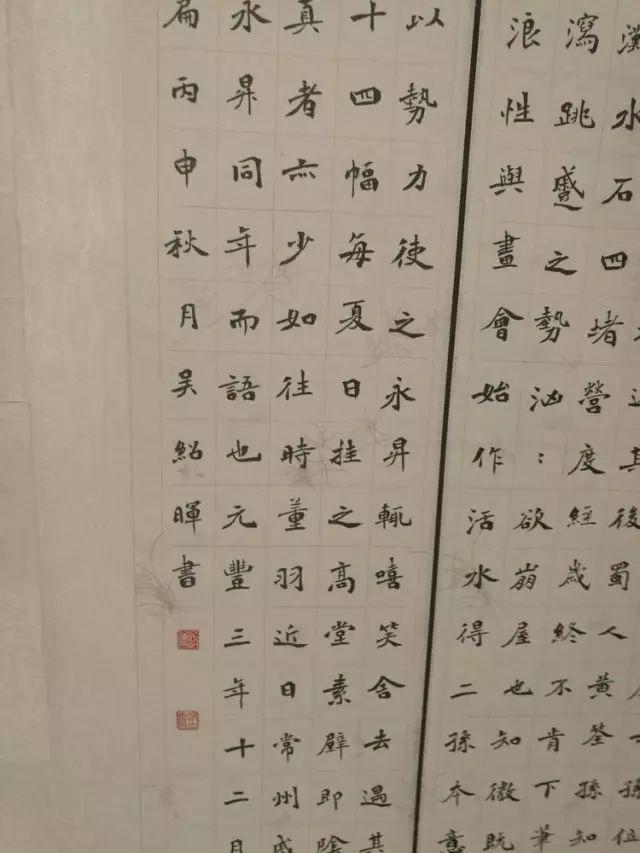 孫位
其後蜀人黃筌孫知
水石四堵營度經歲終不肯下筆
瀉跳蹙之勢汹：欲崩屋也知微既
浪性與畫會始作活水得二孫本意
以勢力使之永昇輒嘻笑舍去遇其
十四幅每夏日挂之高堂素壁即陰
真者亦少如往時董羽近日常州戚
永昇同年而語也元豐三年十二月
扁丙申秋月吴紹暉書